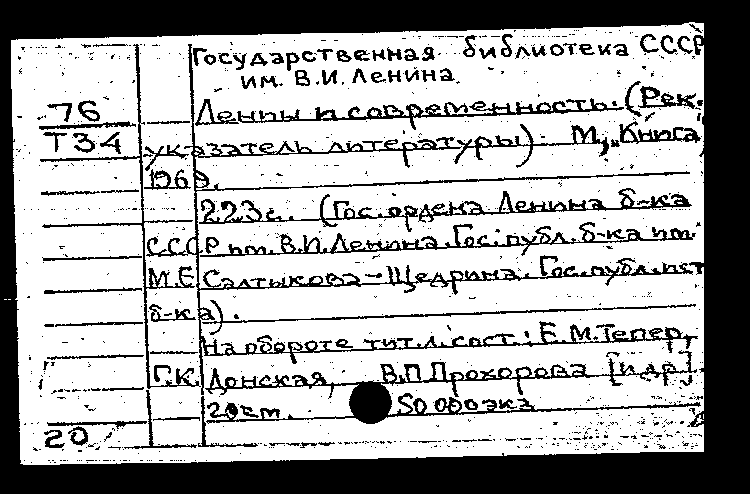 Государственная библиотека СССР
им. В.И. Ленина.
76 Ленин и современность. (Рек.
Т34 указатель литературы). М., "Книга"
1969.
223с. (Гос. ордена Ленина б-ка
СССР им. В.И. Ленина. Гос. публ. б-ка им.
М.Е Салтыкова-Щедрина. Гос. публ. ист
б-ка).
На обороте тит. л. сост.: Е.М. Тепер,
Г.К. Донская, В.П. Прохорова [и др.].
20см. 50 000 экз
20